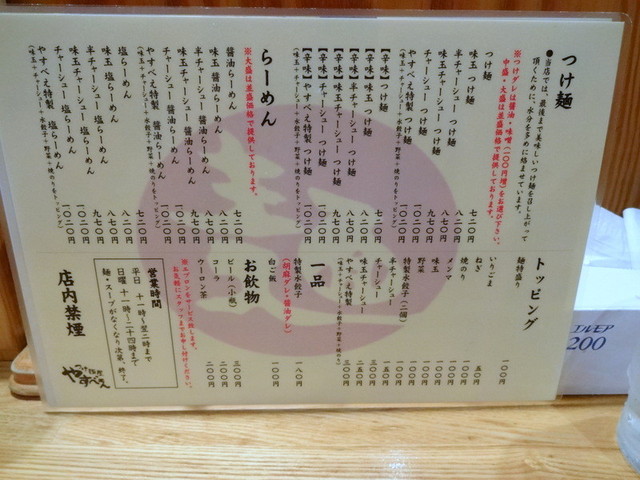 つけ麺
●当店では、最後まで美味しいつけ麺を召し上がって
頂くために、水分を多めに絡ませています。
※つけダレは醤油・味噌(一〇〇円増)をお選び下さい。
中盛・大盛は並盛価格で提供しております。
つけ麺 七二〇円
味玉 つけ麺 八二〇円
半チャーシュー つけ麺 八七〇円
チャーシュー つけ麺 九七〇円
味玉チャーシュー つけ麺 一〇二〇円
やすべえ特製 つけ麺 一〇二〇円
(味玉+チャーシュー+水餃子+野菜+焼のりをトッピング)
【辛味】つけ麺 七二〇円
【辛味】味玉 つけ麺 八二〇円
【辛味】半チャーシュー つけ麺 八七〇円
【辛味】チャーシュー つけ麺 九七〇円
【辛味】味玉チャーシュー つけ麺
【辛味】やすべえ特製 つけ麺 一〇二〇円
(味玉+チャーシュー+水餃子+野菜+焼のりをトッピング)
らーめん
※大盛は並盛価格で提供しております。
醤油らーめん 七二〇円
味玉 醤油らーめん 八二〇円
半チャーシュー 醤油らーめん 八七〇円
チャーシュー 醤油らーめん 九七〇円
味玉チャーシュー 醤油らーめん
やすべえ特製 醤油らーめん 一〇二〇円
(味玉+チャーシュー+水餃子+野菜+焼のりをトッピング)
塩らーめん 七二〇円
味玉 塩らーめん 八二〇円
半チャーシュー 塩らーめん 八七〇円
チャーシュー 塩らーめん 九七〇円
味玉チャーシュー 塩らーめん
やすべえ特製 塩らーめん 一〇二〇円
(味玉+チャーシュー+水餃子+野菜+焼のりをトッピング)
トッピング
麺特盛り 一〇〇円
いりごま
ねぎ 五〇円
焼のり 一〇〇円
メンマ 一〇〇円
味玉 一〇〇円
野菜 一〇〇円
特製水餃子(二個) 一〇〇円
半チャーシュー 一五〇円
チャーシュー
味玉チャーシュー
やすべえ特製 三〇〇円
(味玉+チャーシュー+水餃子+野菜+焼のり)
一品
特製水餃子 一八〇円
(胡麻ダレ・醤油ダレ)
白ご飯 一〇〇円
お飲物
ビール(小瓶) 三〇〇円
コーラ 二〇〇円
ウーロン茶 二〇〇円
※エプロンをサービス致します。
お気軽にスタッフまでお申し付けください。
営業時間
平日 十一時〜翌二時まで
日曜 十一時〜二十四時まで
麺・スープがなくなり次第、終了。
店内禁煙
つけ麺屋
やすべえ
エルモア
200